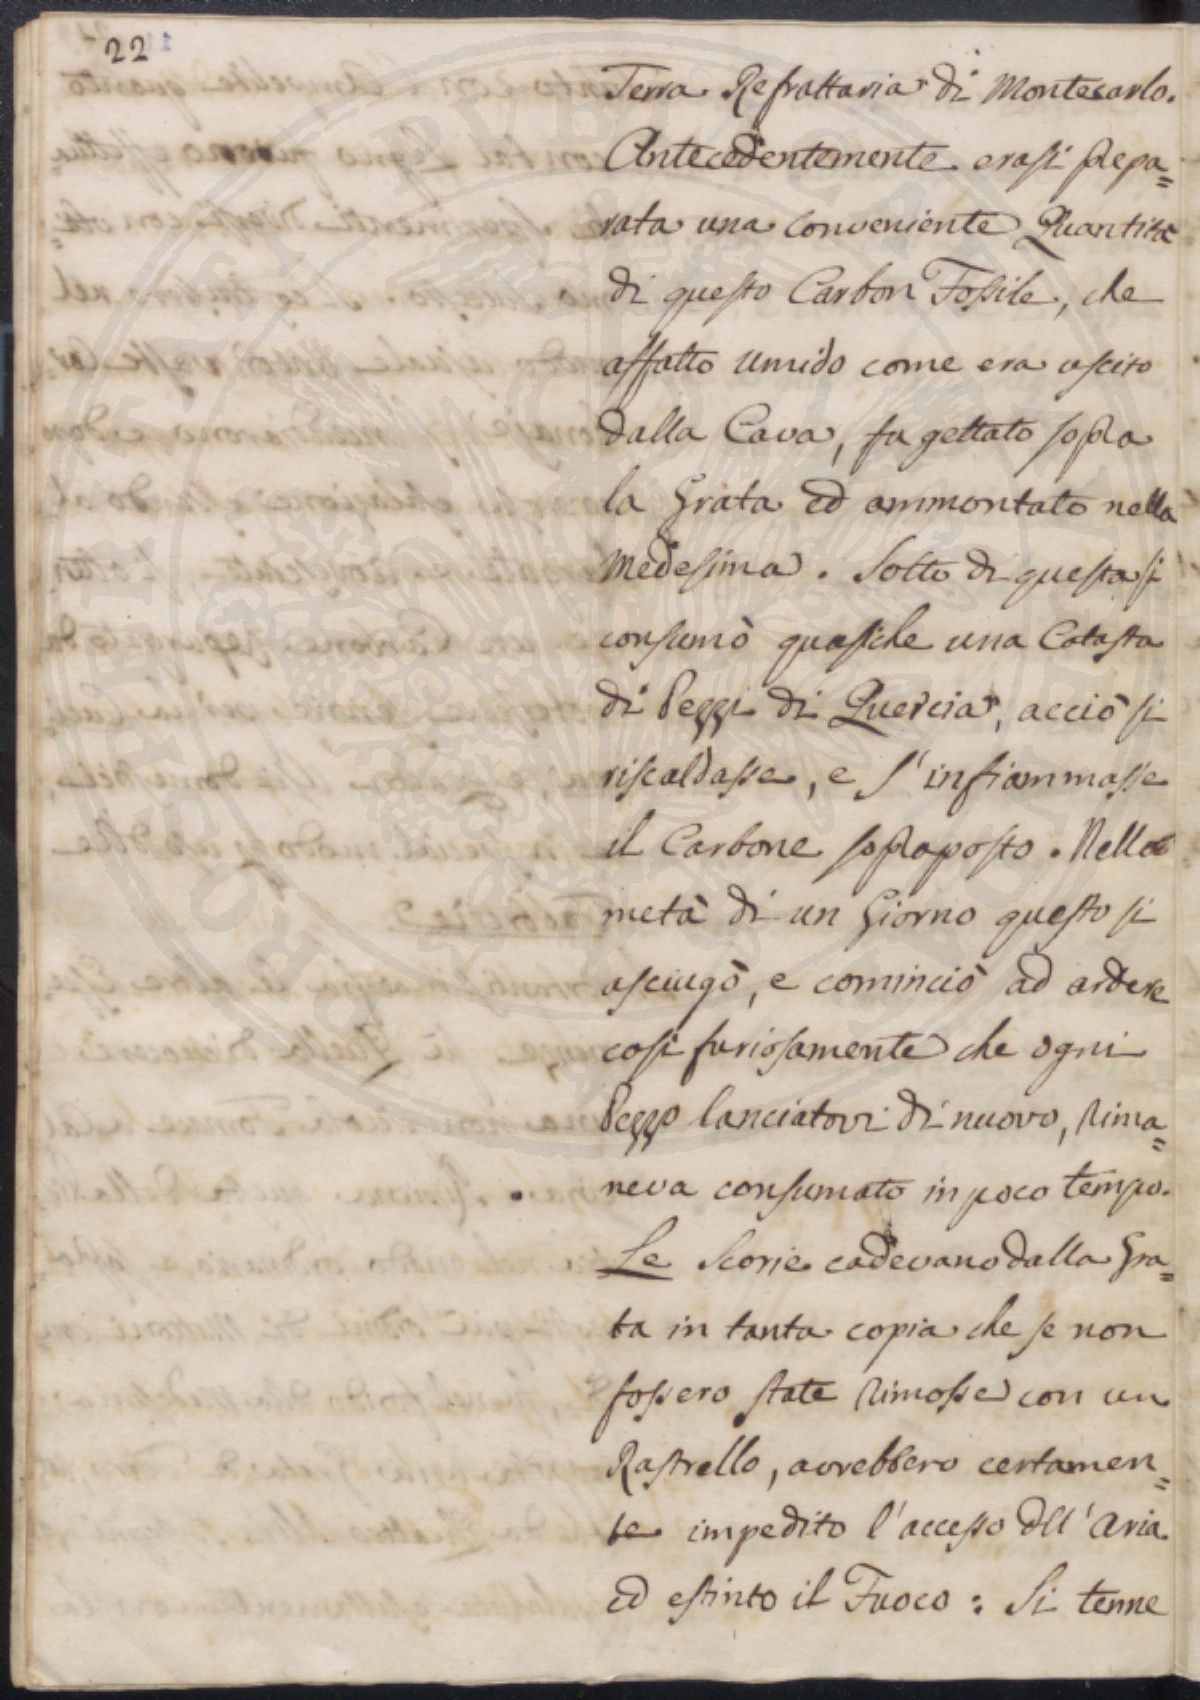 22
Terra Refrattaria di Montecarlo.
Antecedentemente erasi prepa=
rata una conveniente Quantità
di questo Carbon Fossile, che
affatto umido come era uscito
dalla Cava, fu gettato sopra
la Grata ed ammontato nella
medesima. Sotto di questa si
consumò quasiche una Catasta
di Pezzi di Quercia, acciò si
riscaldasse, e s'infiammasse
il Carbone sopraposto. Nella
metà di un Giorno questo si
asciugò, e cominciò ad ardere
così furiosamente che ogni
Pezzo lanciatovi di nuovo, rima=
neva consumato in poco tempo.
Le Scorie cadevano dalla Gra=
ta in tanta copia che se non
fossero state rimosse con un
Rastrello, avrebbero certamen=
te impedito l'accesso dll'Aria
ed estinto il Fuoco: Si tenne